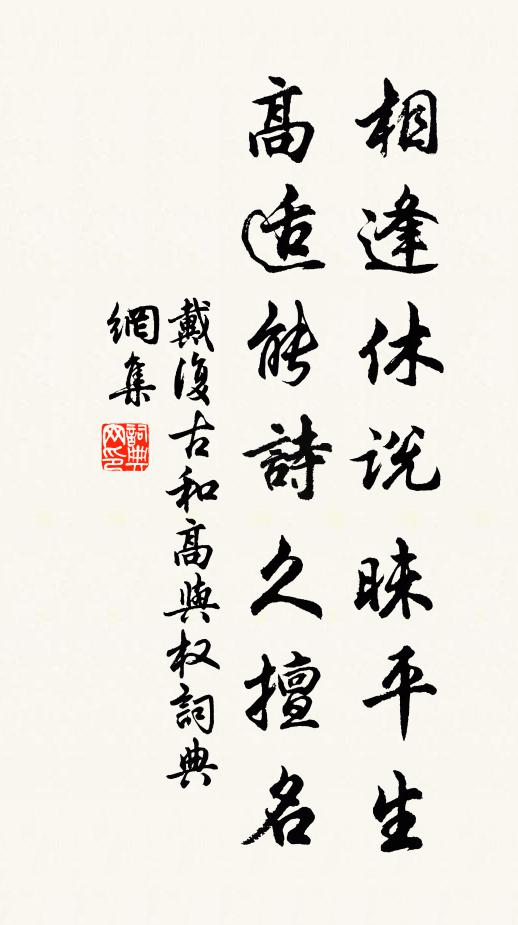 相逢休説昧平生
高适能詩久擅名
戴復古和高與权詞典
網集
詞典
网印